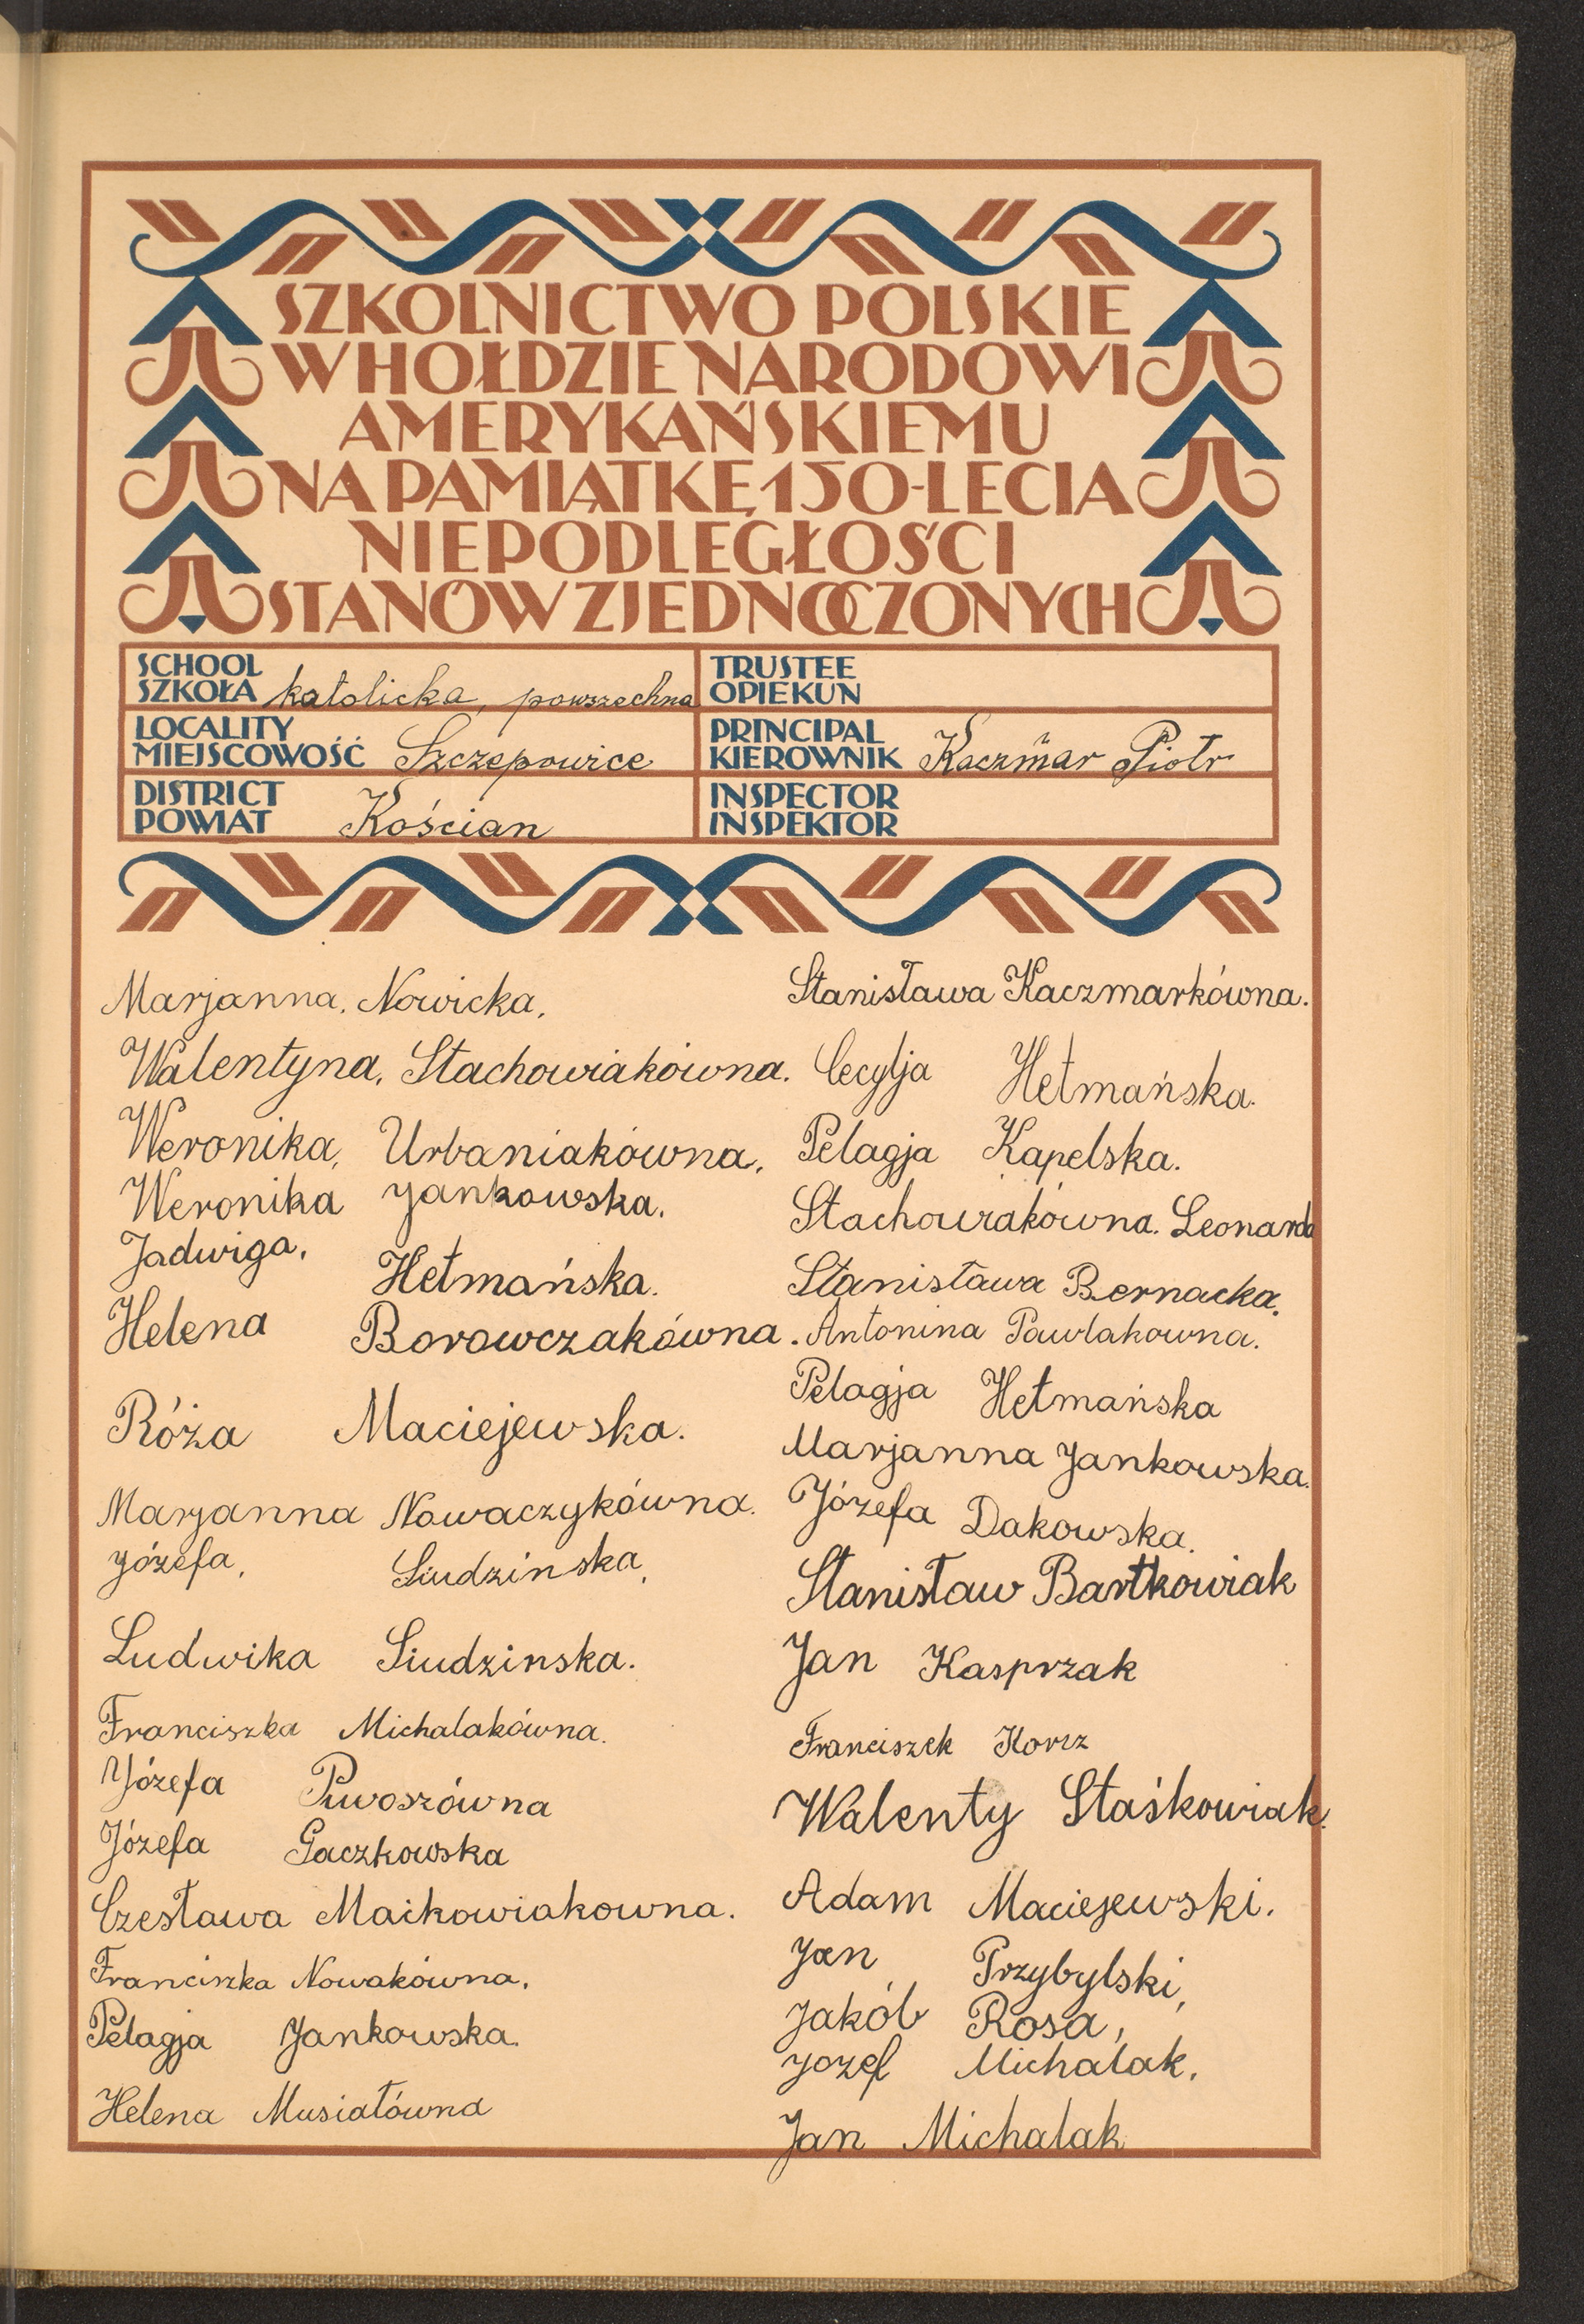 SZKOLNICTWO POLSKIE
W HOŁDZIE NARODOWI
AMERYKAŃSKIEMU
NA PAMIĄTKĘ 150-LECIA
NIEPODLEGŁOŚCI
STANÓW ZJEDNOCZONYCH
SCHOOL
SZKOŁA katolicka, powszechna
LOCALITY
MIEJSCOWOŚĆ Szczepowice
DISTRICT
POWIAT Kościan
TRUSTEE
OPIEKUN
PRINCIPAL
KIEROWNIK Kaczmar Piotr
INSPECTOR
INSPEKTOR
Marjanna, Nowicka,
Walentyna, Stachowiakówna.
Weronika, Urbaniakówna,
Weronika Jankowska.
Jadwiga, Hetmańska.
Helena Borowczakówna.
Róża Maciejewska.
Marjanna Nowaczykówna.
Józefa, Siudzinska,
Ludwika Siudzinska.
Franciszka Michalakówna.
Józefa Piwoszówna
Józefa Gaczkowska
Czesława Maćkowiakowna.
Franciszka Nowakówna,
Pelagja Jankowska.
Helena Musiałówna
Stanisława Kaczmarkówna.
Cecylja Hetmańska.
Pelagja Kapelska.
Stachowiakówna. Leonarda
Stanisława Bernacka.
Antonina Pawlakowna.
Pelagja Hetmańska
Marjanna Jankowska.
Józefa Dakowska.
Stanisław Bartkowiak
Jan Kasprzak
Franciszek
Walenty Staśkowiak.
Adam Maciejewski.
Jan Przybylski,
Jakób Rosa,
Jozef Michalak.
Jan Michalak